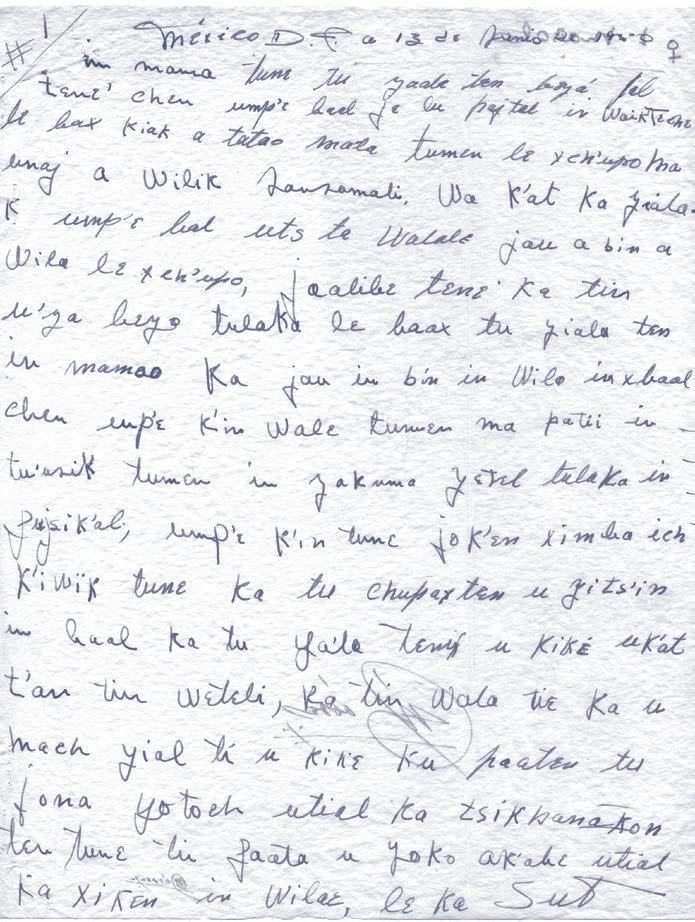 1
México D. F. a 13 de Junio de
in mama tune tu yaala ten beyá
tene' chen ump'e baal je lu pajtal in
le bax kiak a tatao mala tumen le xch'upo ma
unaj a Wilik Wa K'at Ka yiala
K ump'e bal uts ta Walale jau a bin a
Wila le xch'upo, joalibe tene' Ka tin
u'ya beyo tulaka le baax tu yiala ten
in mamao Ka jau in bin in Wilo in xbaal
chen unp'e K'in Wale tumen ma patii in
tu'usik tumen in yakuma yetel tulaka in
pujsik'al, ump'e k'in tune jok'en ximba ich
K'iwik tune Ka tu chupaxten u yits'in
in baal ka tu ya'la teni u kike u k'at
t'an tin weteli, ka tin wala tie ka u
mach yial ti u kike ku paaten tu
jona yotoch utial ka tsikbanakon
ten tune tin paata u yoko ak'abe utial
ka xiken in Wilae, le ka Sut